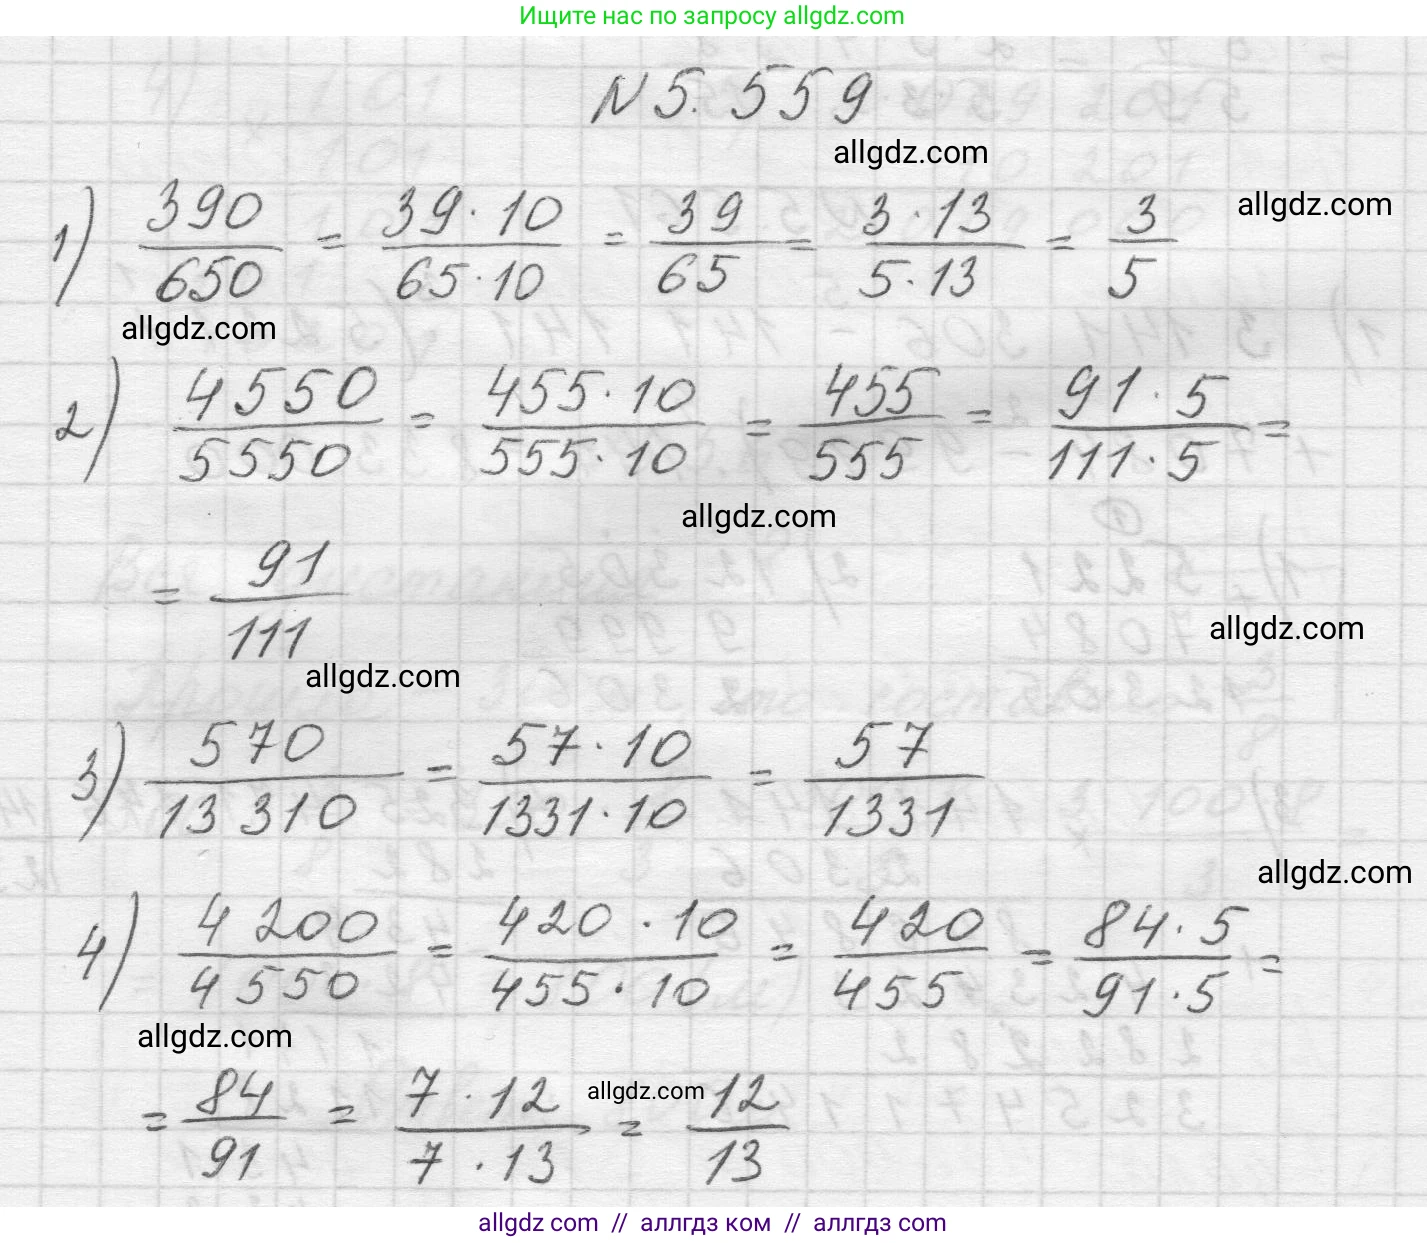 Ищите нас по запросу allgdz.com
N 5.559
allgdz.com
1) 390/650 = 39·10/65·10 = 39/65 = 3·13/5·13 = 3/5
allgdz.com
allgdz.com
2) 4550/5550 = 455·10/555·10 = 455/555 = 91·5/111·5 =
allgdz.com
= 91/111
allgdz.com
allgdz.com
3) 570/13 310 = 57·10/1331·10 = 57/1331
allgdz.com
4) 4 200/4 550 = 420·10/455·10 = 420/455 = 84·5/91·5 =
allgdz.com
= 84/91 = 7·12/7·13 = 12/13
allgdz.com
allgdz com // аллгдз ком // allgdz com